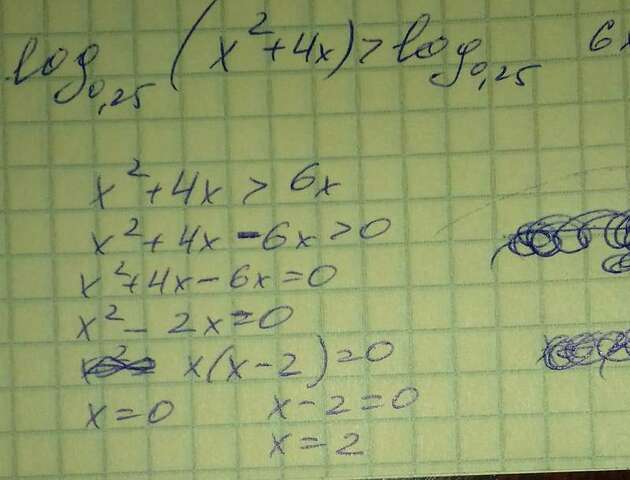 log₀,₂₅ (x² + 4x) > log₀,₂₅ 6x
x² + 4x > 6x
x² + 4x - 6x > 0
x² + 4x - 6x = 0
x² - 2x = 0
x(x - 2) = 0
x = 0 x - 2 = 0
x = 2